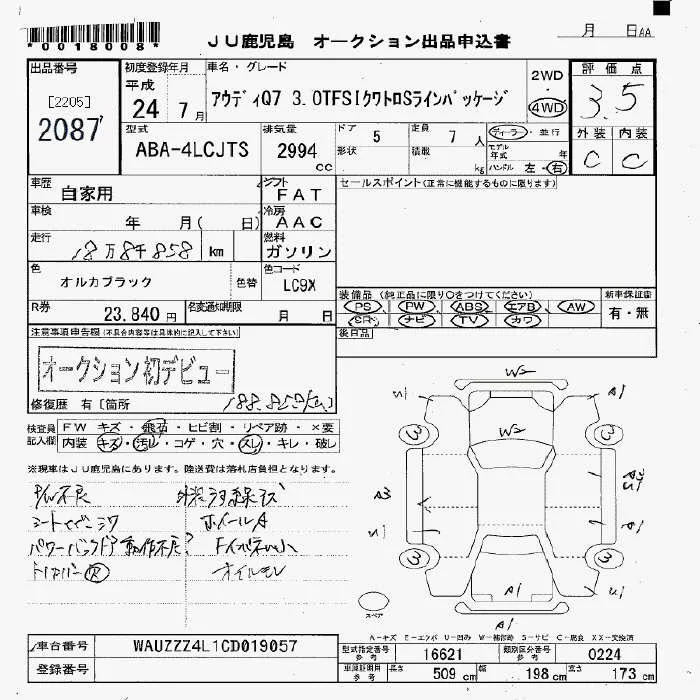 *0018008*
JU鹿児島 オークション出品申込書
月 日AA
出品番号
[2205]
2087
初度登録年月
平成
24 7月
車名・グレード
アウディQ7 3.0TFSIクワトロSラインパッケージ
2WD
4WD
評価点
3.5
外装 内装
C C
型式
ABA-4LCJTS
排気量
2994
cc
ドア 5
形状
定員 7 人
積載 kg
ディーラー・並行
モデル年式 年
ハンドル 左・右
車歴
自家用
シフト
FAT
車検 年 月( 日)
冷房
AAC
走行 18万8千858 km
燃料
ガソリン
色
オルカブラック
色替
色コード
LC9X
R券
23,840円
名変通知期限
月 日
セールスポイント(正常に機能するものに限ります)
装備品(純正品に限り○をつけてください)
PS PW ABS エアB AW
SR ナビ TV カワ
新車保証書
有・無
後日品
注意事項申告欄(不具合内容等は具体的に記入して下さい)
オークション初デビュー
修復歴 有〔箇所
188,858km
検査員記入欄
FW キズ・飛石・ヒビ割・リペア跡・×要
内装 キズ・汚レ・コゲ・穴・スレ・キレ・破レ
※現車はJU鹿児島にあります。陸送費は落札店負担となります。
ホイールA
オイルモレ
W2
W2
U1
A1
3
3
A3
A2
U1
U1
A1
3
3
A1
U1
A1
スペア
A-キズ E-エクボ U-凹み W-補修跡 S-サビ C-腐食 XX-交換済
車台番号
WAUZZZ4L1CD019057
登録番号
型式指定番号
参考
16621
類別区分番号
参考
0224
車庫証明用
参考
長さ 509 cm
幅 198 cm
高さ 173 cm